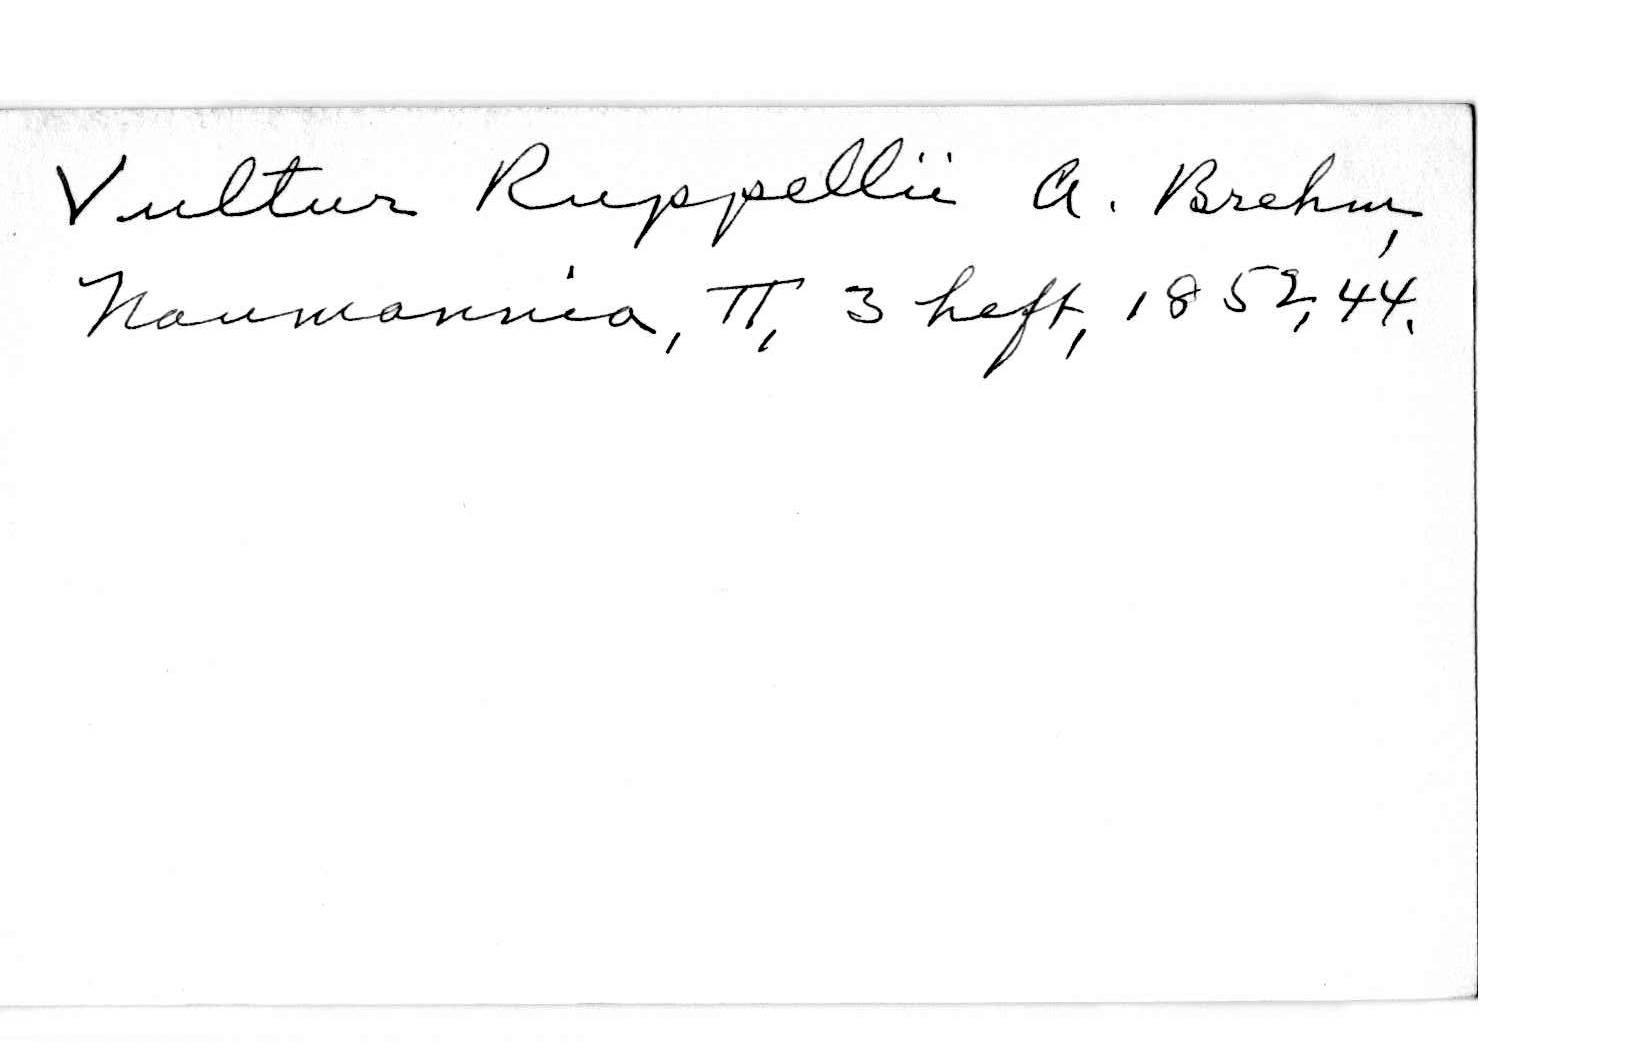 Vultur Ruppellii A. Brehm,
Naumannia, II, 3 heft, 1852, 44.